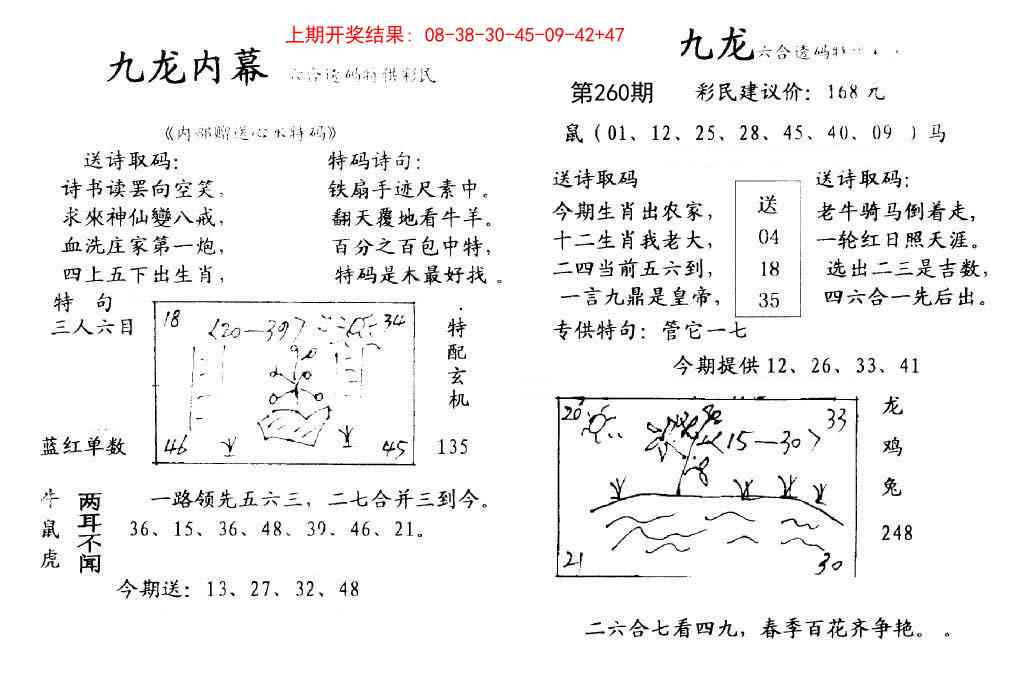 上期开奖结果: 08-38-30-45-09-42+47
九龙内幕 六合透码特供彩民
《内部赠送心水特码》
送诗取码:
诗书读罢向空笑,
求來神仙變八戒,
血洗庄家第一炮,
四上五下出生肖,
特码诗句:
铁扇手迹尺素中。
翻天覆地看牛羊。
百分之百包中特,
特码是木最好找。
特 句
三人六目
蓝红单数
18
〈20—39〉
34
46
45
特配玄机
135
牛
鼠
虎
两耳不闻
一路领先五六三, 二七合并三到今。
36、15、36、48、39、46、21。
今期送: 13、27、32、48
九龙 六合透码特
第260期 彩民建议价: 168元
鼠(01、12、25、28、45、40、09 )马
送诗取码
今期生肖出农家,
十二生肖我老大,
二四当前五六到,
一言九鼎是皇帝,
送
04
18
35
送诗取码:
老牛骑马倒着走,
一轮红日照天涯。
选出二三是吉数,
四六合一先后出。
专供特句: 管它一七
今期提供12、26、33、41
20
33
〈15—30〉
21
30
龙
鸡
兔
248
二六合七看四九, 春季百花齐争艳。 。